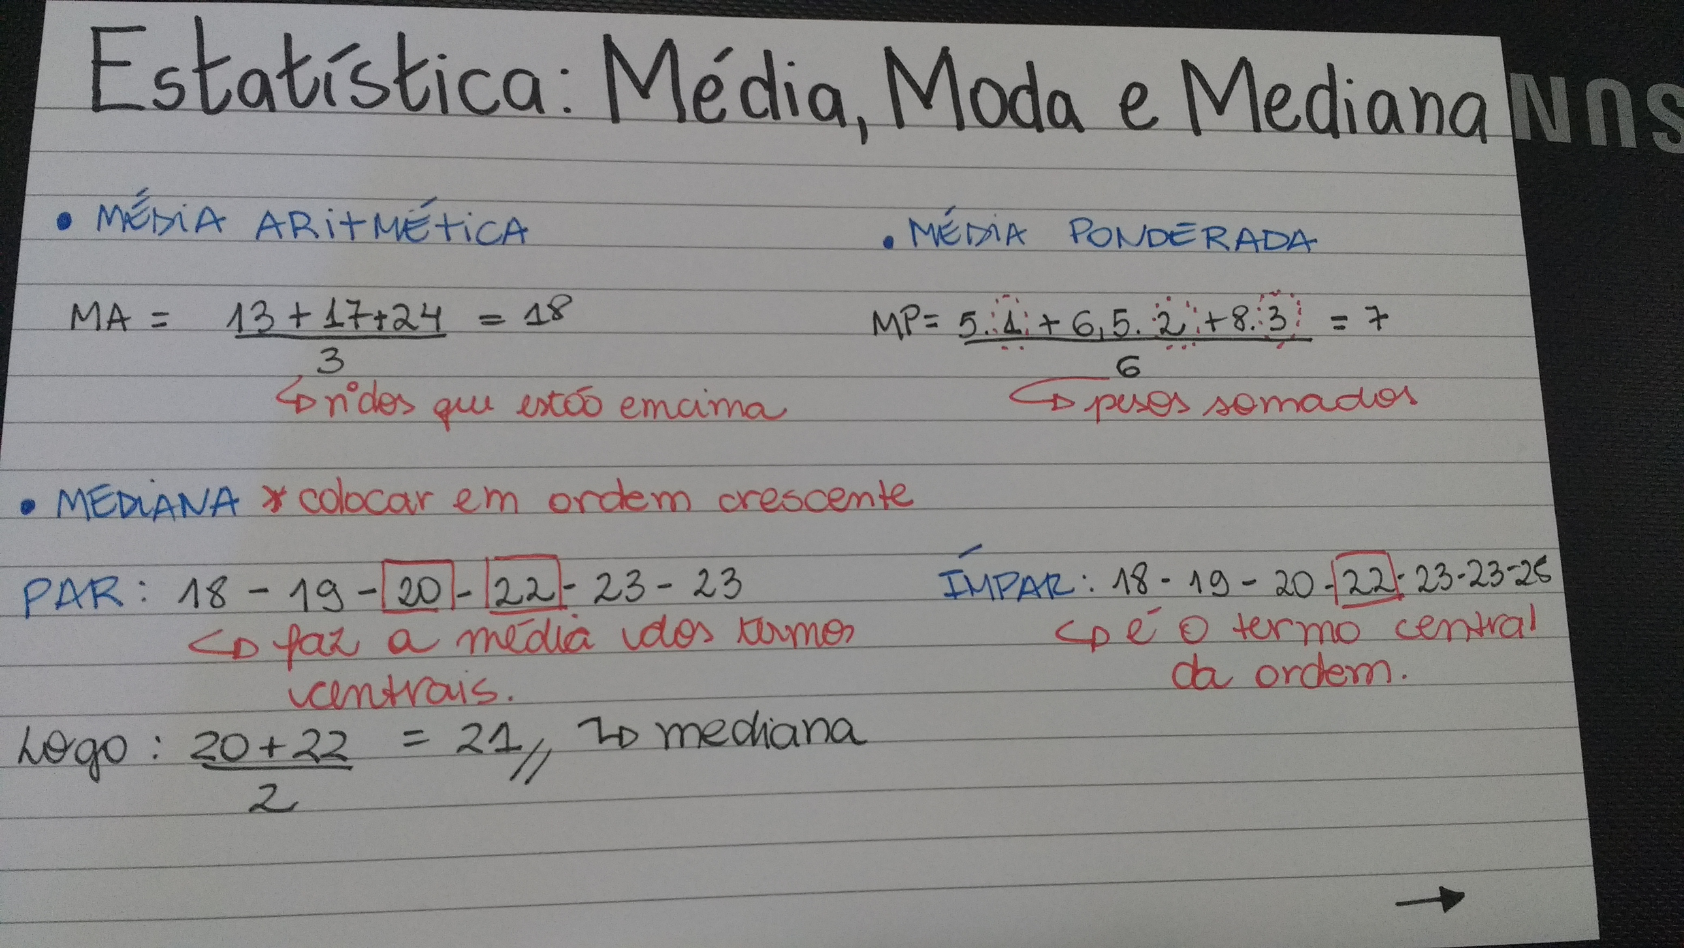 Estatística: Média, Moda e Mediana
SUN
• MÉDIA ARITMÉTICA
• MÉDIA PONDERADA
MA = 13+17+24 = 18
3
↳ nº dos que estão em cima
MP= 5.1 + 6,5.2 + 8.3 = 7
6
↳ pesos somados
• MEDIANA * colocar em ordem crescente
PAR: 18 - 19 - 20 - 22 - 23 - 23
↳ faz a média dos termos
centrais.
Logo: 20+22 = 21// ↳ mediana
2
ÍMPAR: 18 - 19 - 20 - 22 - 23-23-25
↳ é o termo central
da ordem.
→